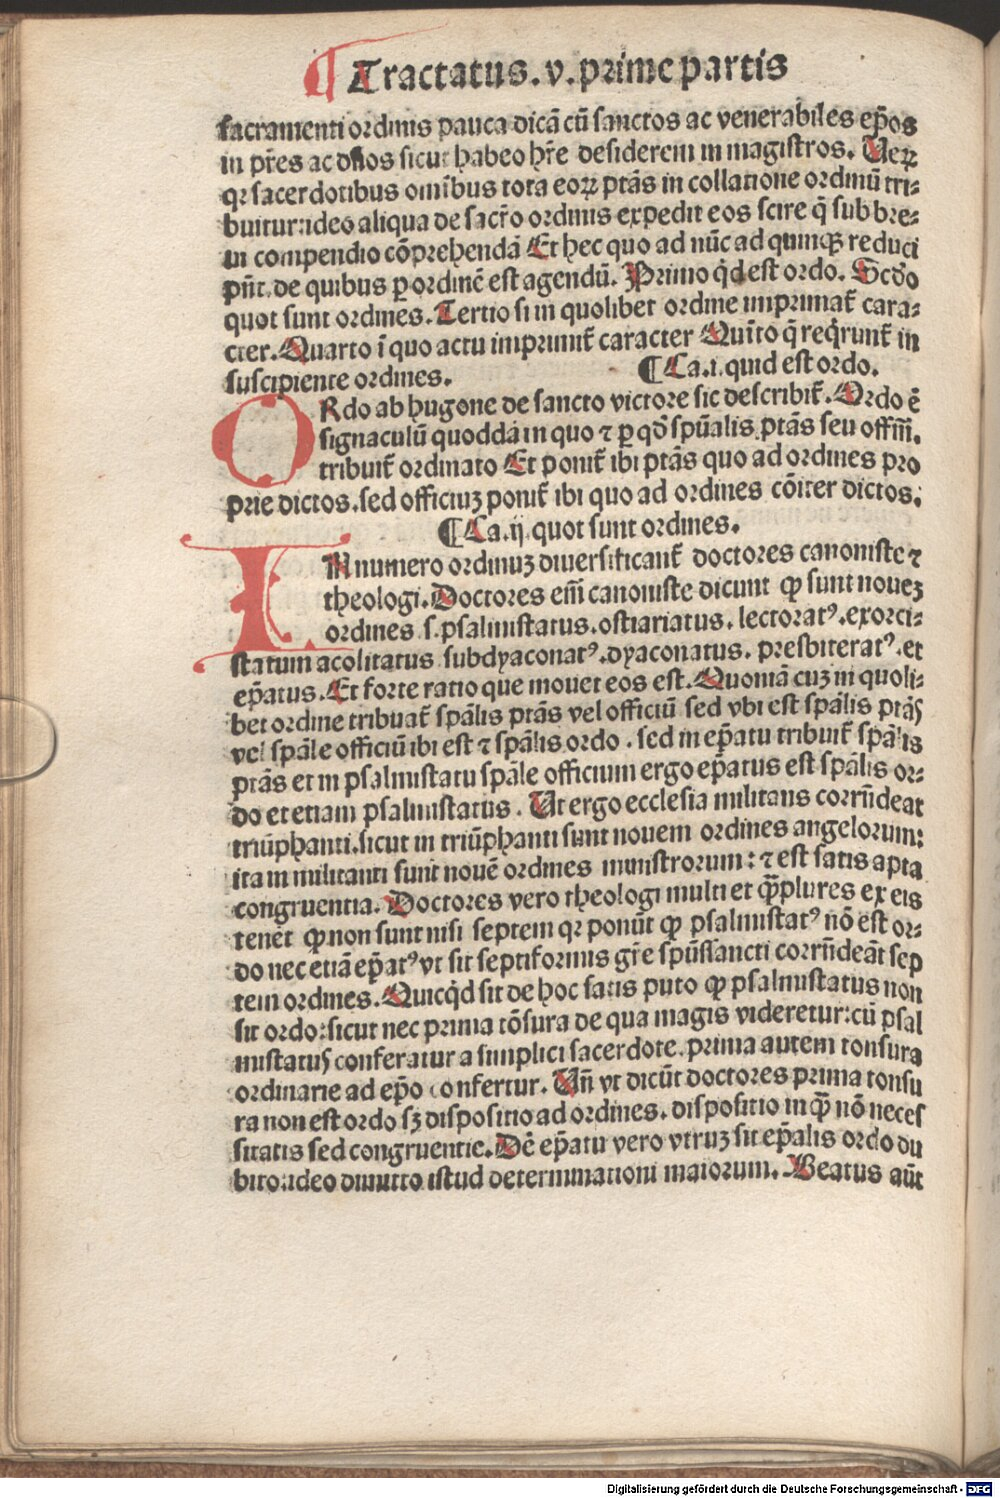 ¶ Tractatus. v. prime partis
sacramenti ordinis pauca dicā cū sanctos ac venerabiles ep̄os
in pr̄es ac dn̄os sicut habeo hr̄e desiderem in magistros. Ueꝝ
qꝛ sacerdotibus omībus tota eoꝝ ptās in collatione ordinū tri⸗
buitur: ideo aliqua de sacr̄o ordinis expedit eos scire q̄ sub bre⸗
ui compendio cōprehendā Et hec quo ad nūc ad quinqꝫ reduci
pn̄t. de quibus ꝑ ordinē est agendū. Primo qͥd est ordo. Scd̄o
quot sunt ordines. Tertio si in quolibet ordine imprimat̄ cara⸗
cter. Quarto ī quo actu imprimit̄ caracter Quīto q̄ reqͥrunt̄ in
suscipiente ordines. ¶ Ca. i. quid est ordo.
ORdo ab hugone de sancto victore sic describit̄. Ordo ē
signaculū quoddā in quo ⁊ ꝑ qd̄ spūalis ptās seu offm̄.
tribuit̄ ordinato Et ponit̄ ibi ptās quo ad ordines pro
prie dictos. sed officiuꝫ ponit̄ ibi quo ad ordines cōiter dictos.
¶ Ca. ij. quot sunt ordines.
IN numero ordinuꝫ diuersificant̄ doctores canoniste ⁊
theologi. Doctores em̄ canoniste dicunt ꝙ sunt noueꝫ
ordines .s. psalmistatus. ostiariatus. lectoratꝰ. exorci⸗
statum acolitatus subdyaconatꝰ. dyaconatus. presbiteratꝰ. et
ep̄atus. Et forte ratio que mouet eos est. Quoniā cuꝫ in quoli⸗
bet ordine tribuat̄ spālis ptās vel officiū sed vbi est spālis ptās
vel spāle officiū ibi est ⁊ spālis ordo. sed in ep̄atu tribuit̄ spālis
ptās et in psalmistatu spāle officium ergo ep̄atus est spālis or⸗
do et etiam psalmistatus. Ut ergo ecclesia militans corrn̄deat
triūphanti. sicut in triūphanti sunt nouem ordines angelorum:
ita in militanti sunt nouē ordines ministrorum: ⁊ est satis apta
congruentia. Doctores vero theologi multi et qͣꝫplures ex eis
tenēt ꝙ non sunt nisi septem qꝛ ponūt ꝙ psalmistatꝰ nō est or⸗
do nec etiā ep̄atꝰ vt sit septiformis gr̄e spūssancti corrn̄deāt sep
tem ordines. Quicqͥd sit de hoc satis puto ꝙ psalmistatus non
sit ordo: sicut nec prima tōsura de qua magis videretur: cū psal
mistatus conferatur a simplici sacerdote. prima autem tonsura
ordinarie ad ep̄o confertur. Un̄ vt dicūt doctores prima tonsu
ra non est ordo sꝫ dispositio ad ordines. dispositio inqͣꝫ nō neces
sitatis sed congruentie. Dē ep̄atu vero vtruꝫ sit ep̄alis ordo du
bito: ideo dimitto istud determinationi maiorum. Beatus aūt
Digitalisierung gefördert durch die Deutsche Forschungsgemeinschaft - DFG